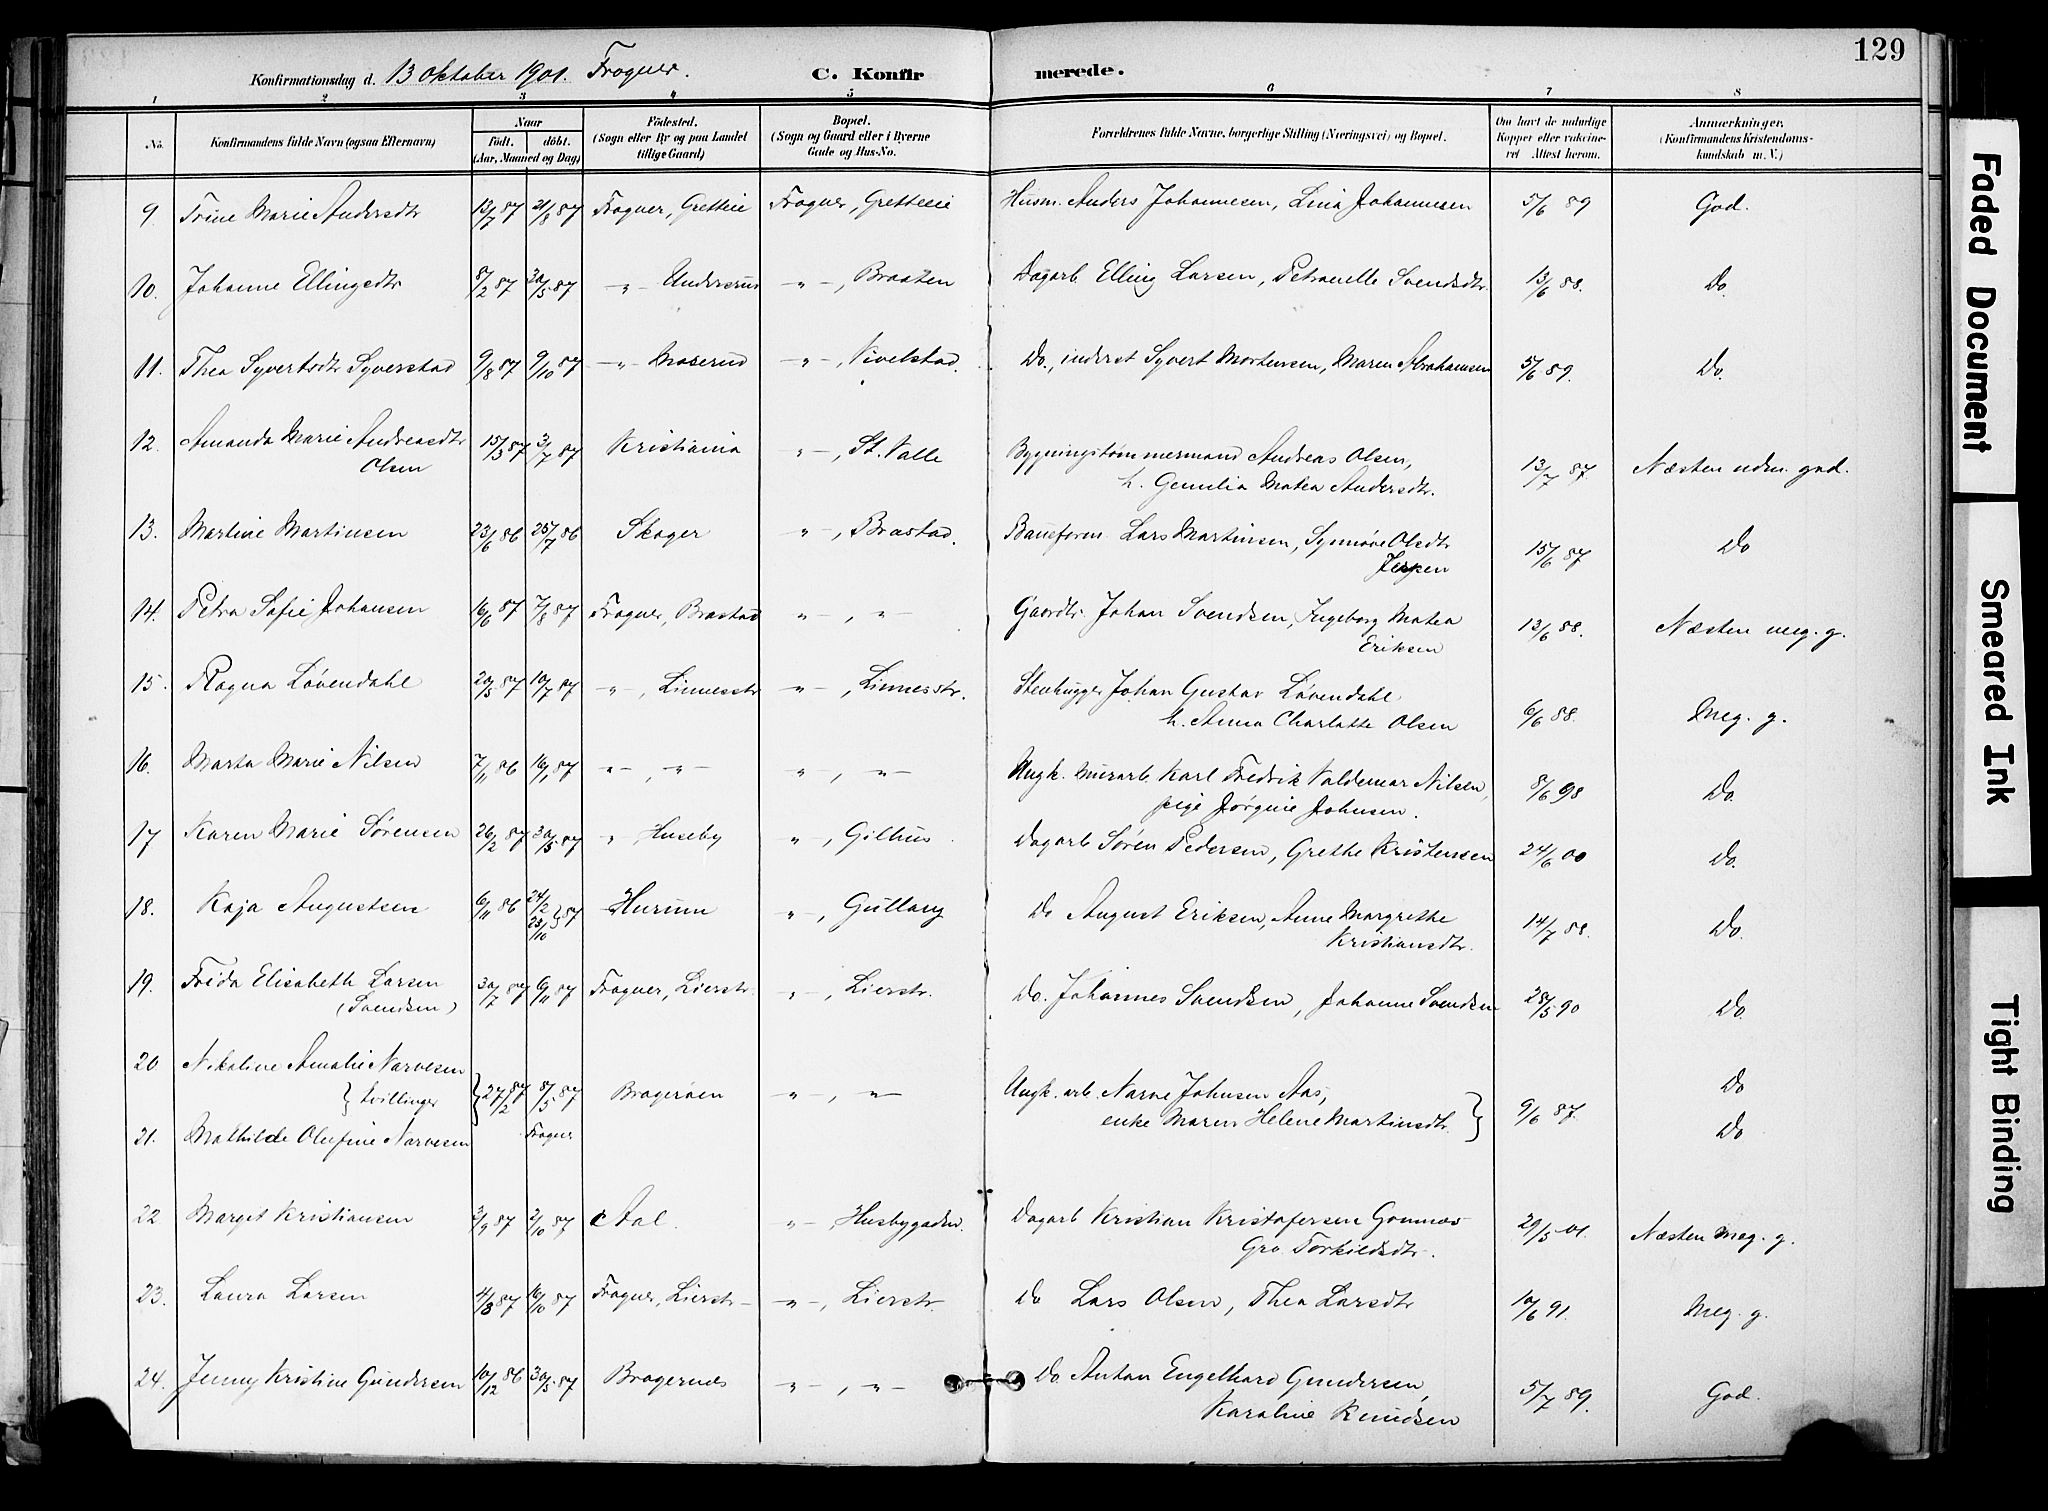 129
Konfirmationsdag d. 13 Oktober 1901. Frogner. C. Konfirmerede.
1 2 3 4 5 6 7 8
No. Konfirmandens fulde Navn (ogsaa Efternavn) Naar födt. döbt. (Aar, Maaned og Dag) Födested. (Sogn eller By og paa Landet tillige Gaard) Bopæl. (Sogn og Gaard eller i Byerne Gade og Hus-No. Forældrenes fulde Navne, borgerlige Stilling (Næringsvei) og Bopæl. Om havt de naturlige Kopper eller vakcineret Attest herom. Anmærkninger. (Konfirmandens Kristendomskundskab m. V.)
9. Trine Marie Andersdtr 13/7 87 21/8 87 Frogner, Gretteie Frogner, Gretteeie Husm. Anders Johannesen, Lina Johannesen 5/6 89 God.
10. Johanne Ellingsdtr 8/2 87 30/5 87 -"- Undersrud -"-, Braaten Dagarb. Elling Larsen, Petronelle Svendsdtr. 13/6 88. Do.
11. Thea Syvertsdtr Syverstad 9/8 87 9/10 87 -"- Moserud -"-, Vivelstad. Do., inderst Syvert Mortensen, Maren Abrahamsen 5/6 89. Do.
12. Amanda Marie Andreasdtr 15/3 87 3/7 87 Kristiania -"-, St. Valle Bygningstømmermand Andreas Olsen, 13/7 87. Næsten udm. god.
Olsen h. Gemilia Matea Andersdtr.
13. Martine Martinsen 23/6 86 25/7 86 Skoger -"-, Brastad. Baneform. Lars Martinsen, Synnøve Olsdtr 15/6 87 Do
Jespen
14. Petra Sofie Johansen 16/6 87 7/8 87 Frogner, Brastad -"-, " Gaardbr. Johan Svendsen, Ingeborg Matea 13/6 88. Næsten meg. g.
Eriksen
15. Ragna Løvendahl 20/5 87 10/7 87 -"-, Linnesstr -"-, Linnesstr. Stenhugger Johan Gustav Løvendahl 6/6 88. Meg. g.
h. Anna Charlotte Olsen
16. Marta Marie Nilsen 7/11 86 16/1 87 -"-, -"- ", -"- Ungk. murarb. Karl Fredrik Valdemar Nilsen, 8/6 98 Do.
pige Jørgine Johnsen.
17 Karen Marie Sørensen 26/2 87 30/5 87 ", Huseby "-, Gilhus. Dagarb Søren Pedersen, Grethe Kristensen 24/6 00 Do.
18. Kaja Augustsen 6/11 86 24/2 23/10 } 87 Hurum "-, Gullaug Do August Eriksen, Anne Margrethe 14/7 88. Do.
Kristiansdtr.
19. Frida Elisabeth Larsen 30/7 87 6/11 87 Frogner, Lierstr. "-, Lierstr. Do. Johannes Svendsen, Johanne Svendsen 28/5 90 Do.
(Svendsen)
20. Nikoline Amalie Narvesen
} tvillinger } 27/2 87 8/5 87 Bragerøen -"-, -"- Ungk. arb. Narve Johnsen Aas, 9/6 87. Do
enke Maren Helene Martinsdtr. }
21. Mathilde Olufine Narvesen Frogner Do
22 Margit Kristiansen 3/9 87 2/10 87 Aal. "-, Husbygaden. Dagarb Kristian Kristofersen Gonnas 29/5 01. Næsten meg. g.
Gro Torkildsdtr.
23. Laura Larsen 4/8 87 16/10 87 Frogner, Lierstr- -"-, Lierstr. Do Lars Olsen, Thea Larsdtr 10/6 91. Meg. g.
24. Jenny Kristine Gundersen 10/12 86 30/5 87 Bragernes -"-, -"- Do. Anton Engelhard Gundersen, 5/7 89. God.
Karoline Knudsen
Faded Document
Smeared Ink
Tight Binding